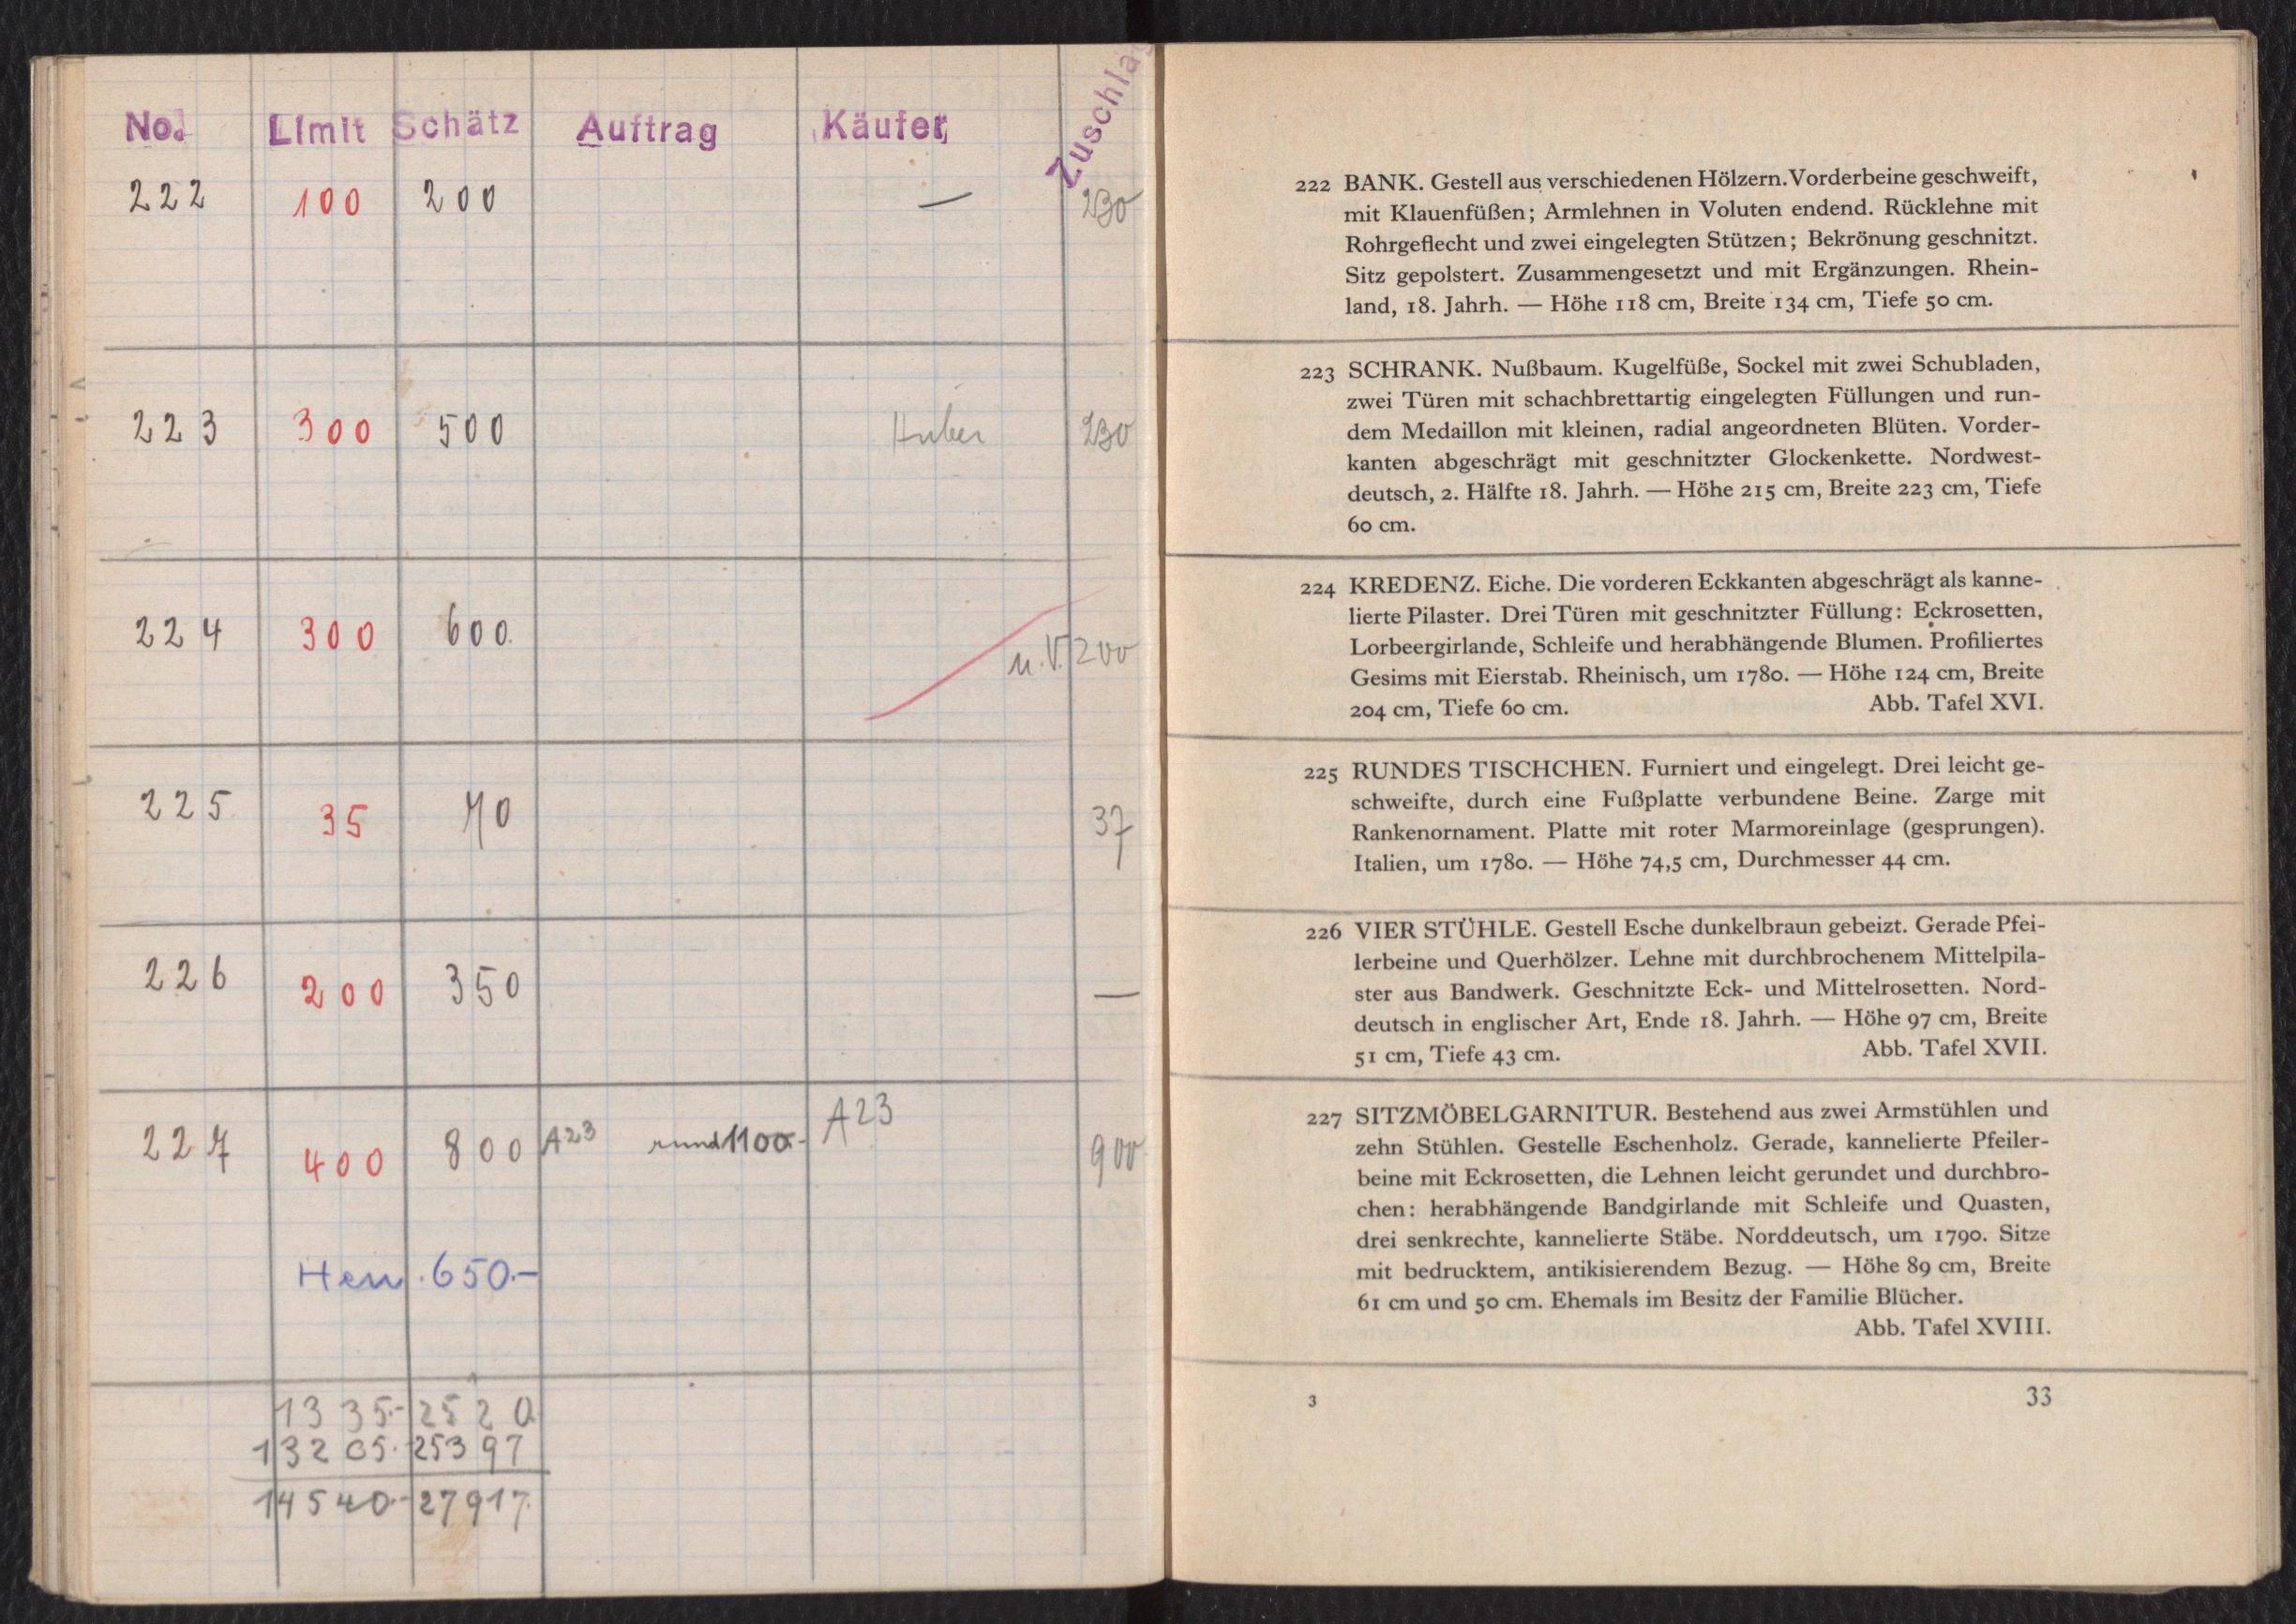 No. Limit Schätz Auftrag Käufer Zuschlag
222 100 200 — 230
223 300 500 Huber 230
224 300 600. u.V. 200
225 35 70 37
226 200 350 —
227 400 800 A23 rund 1100.- A23 900
650.-
1335.- 2520
13205.- 25397
14540.- 27917.
222 BANK. Gestell aus verschiedenen Hölzern. Vorderbeine geschweift,
mit Klauenfüßen; Armlehnen in Voluten endend. Rücklehne mit
Rohrgeflecht und zwei eingelegten Stützen; Bekrönung geschnitzt.
Sitz gepolstert. Zusammengesetzt und mit Ergänzungen. Rhein-
land, 18. Jahrh. — Höhe 118 cm, Breite 134 cm, Tiefe 50 cm.
223 SCHRANK. Nußbaum. Kugelfüße, Sockel mit zwei Schubladen,
zwei Türen mit schachbrettartig eingelegten Füllungen und run-
dem Medaillon mit kleinen, radial angeordneten Blüten. Vorder-
kanten abgeschrägt mit geschnitzter Glockenkette. Nordwest-
deutsch, 2. Hälfte 18. Jahrh. — Höhe 215 cm, Breite 223 cm, Tiefe
60 cm.
224 KREDENZ. Eiche. Die vorderen Eckkanten abgeschrägt als kanne-
lierte Pilaster. Drei Türen mit geschnitzter Füllung: Eckrosetten,
Lorbeergirlande, Schleife und herabhängende Blumen. Profiliertes
Gesims mit Eierstab. Rheinisch, um 1780. — Höhe 124 cm, Breite
204 cm, Tiefe 60 cm. Abb. Tafel XVI.
225 RUNDES TISCHCHEN. Furniert und eingelegt. Drei leicht ge-
schweifte, durch eine Fußplatte verbundene Beine. Zarge mit
Rankenornament. Platte mit roter Marmoreinlage (gesprungen).
Italien, um 1780. — Höhe 74,5 cm, Durchmesser 44 cm.
226 VIER STÜHLE. Gestell Esche dunkelbraun gebeizt. Gerade Pfei-
lerbeine und Querhölzer. Lehne mit durchbrochenem Mittelpila-
ster aus Bandwerk. Geschnitzte Eck- und Mittelrosetten. Nord-
deutsch in englischer Art, Ende 18. Jahrh. — Höhe 97 cm, Breite
51 cm, Tiefe 43 cm. Abb. Tafel XVII.
227 SITZMÖBELGARNITUR. Bestehend aus zwei Armstühlen und
zehn Stühlen. Gestelle Eschenholz. Gerade, kannelierte Pfeiler-
beine mit Eckrosetten, die Lehnen leicht gerundet und durchbro-
chen: herabhängende Bandgirlande mit Schleife und Quasten,
drei senkrechte, kannelierte Stäbe. Norddeutsch, um 1790. Sitze
mit bedrucktem, antikisierendem Bezug. — Höhe 89 cm, Breite
61 cm und 50 cm. Ehemals im Besitz der Familie Blücher.
Abb. Tafel XVIII.
3 33